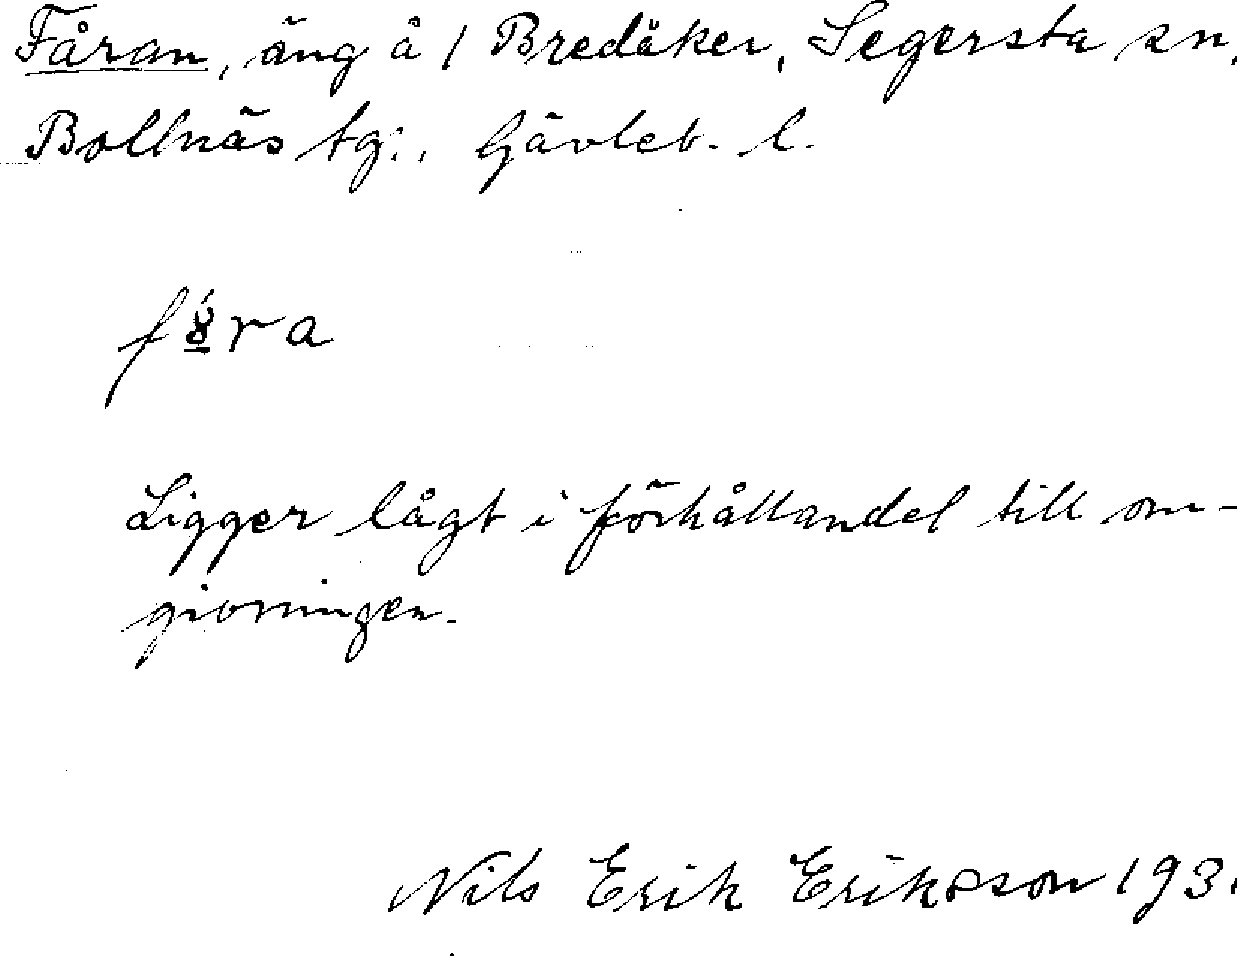 Fåran, äng å 1 Bredåker, Segersta sn,
Bollnäs tg:, Gävleb. l.
Ligger lågt i förhållandel till om-
givningen.
Nils Erik Eriksson 193